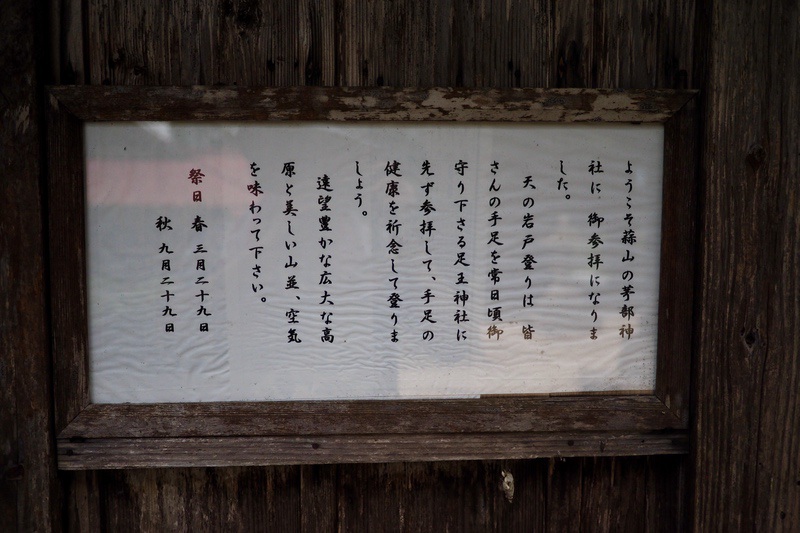 ようこそ蒜山の茅部神
社に 御参拝になりま
した。
天の岩戸登りは 皆
さんの手足を常日頃御
守り下さる足王神社に
先ず参拝して、手足の
健康を祈念して登りま
しょう。
遠望豊かな広大な高
原と美しい山並、空気
を味わって下さい。
祭日 春 三月二十九日
秋 九月二十九日